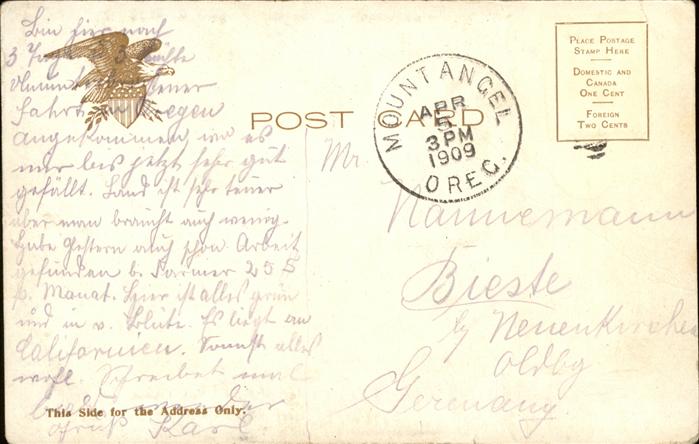 Bin hier nach
3 Tage 3 Nächte
ununterbrochener
Fahrt
angekommen, wo es
mir bis jetzt sehr gut
gefällt. Land ist sehr teuer
aber man braucht auch wenig.
Habe Gestern auch schon Arbeit
gefunden b. Farmer 25 $
p. Monat. Hier ist alles grün
und in v. Blüte. Es liegt an
Californien. Sonnst alles
wohl. Schreibet mal
Gruß Karl.
This Side for the Address Only.
POST CARD
MOUNT ANGEL
APR
5
3 PM
1909
OREG.
PLACE POSTAGE
STAMP HERE
DOMESTIC AND
CANADA
ONE CENT
FOREIGN
TWO CENTS
Mr.
Nannemann
Bieste
b/ Neuenkirchen
Oldbg
Germany